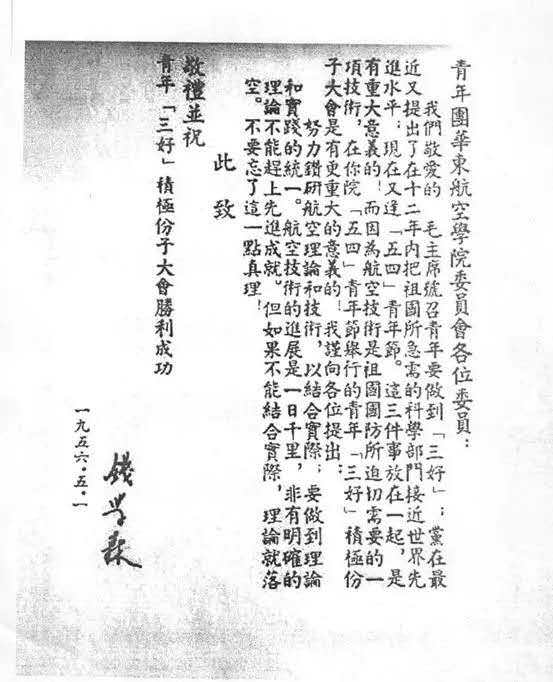 青年團華東航空學院委員會各位委員：
我們敬愛的　毛主席號召青年要做到「三好」；黨在最
近又提出了在十二年內把祖國所急需的科學部門接近世界先
進水平；現在又逢「五四」青年節。這三件事放在一起，是
有重大意義的！而因為航空技術是祖國國防所迫切需要的一
項技術，在你院「五四」青年節舉行的青年「三好」積極份
子大會是有更重大的意義的！我謹向各位提出：
努力鑽研航空理論和技術，以結合實際；要做到理論
和實踐的統一。航空技術的進展是一日千里，非有明確的
理論不能趕上先進成就。但如果不能結合實際，理論就落
空。不要忘了這一點真理！
此致
敬禮並祝
青年「三好」積極份子大會勝利成功
錢學森
一九五六·五·一